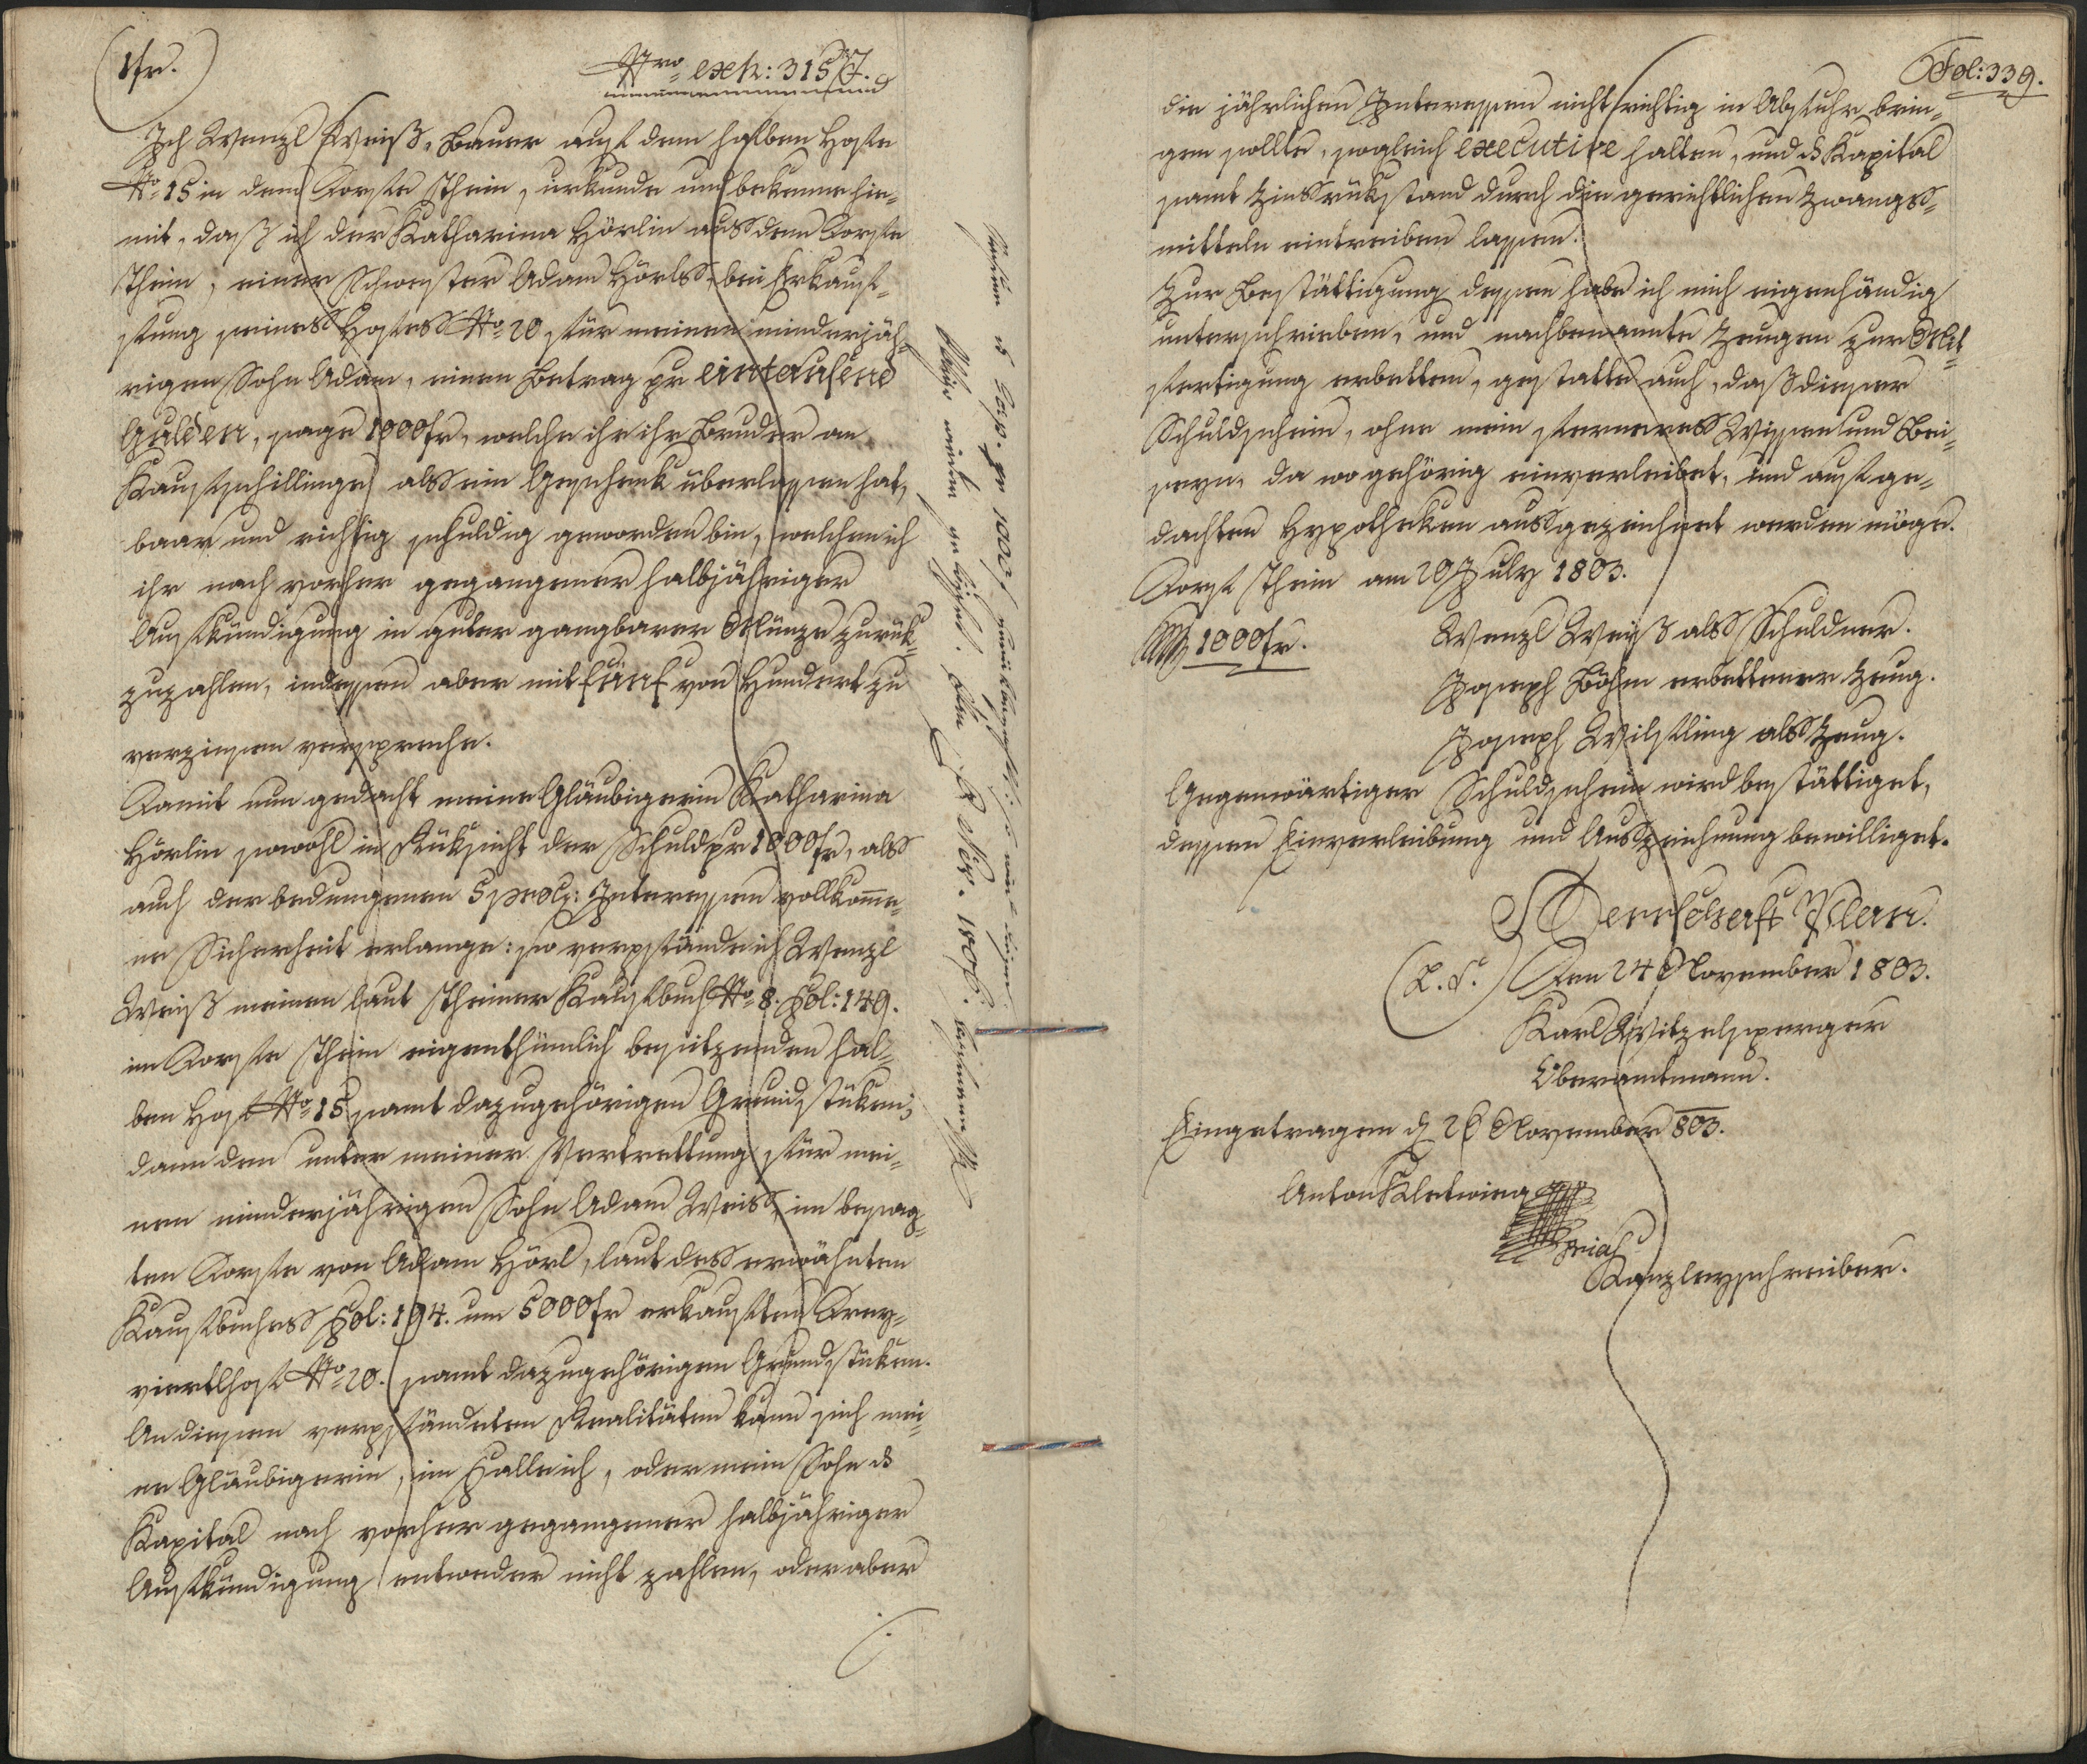 1fr.
Nro exh: 315 J.
Ich Wenzl Weiß, Bauer auf dem halben Hofe
No 15 in dem Dorfe Thein, urkunde und bekenne hie-
mit, daß ich der Katharina Hörlin aus dem Dorfe
Thein, einer Schwester Adam Hörls, bei Erkauf-
fung seines Hofes No 20 für meinen minderjäh-
rigen Sohn Adam, einen Betrag pr eintausend
Gulden, sage 1000 fr, welche ihr ihr Bruder an
Kaufschillinge als ein Geschenk überlassen hat,
baar und richtig schuldig geworden bin, welchen ich
ihr nach vorher gegangener halbjähriger
Aufkündigung in guter gangbarer Münze zurük-
zuzahlen, indessen aber mit fünf von Hundert zu
verzinsen verspreche.
Damit nun gedacht meine Gläubigerin Katharina
Hörlin sowohl in Rüksicht der Schuld pr 1000 fr, als
auch der bedungenen 5 prctg: Interessen vollkomme-
ne Sicherheit erlange: so verpfände ich Wenzl
Weiß meinen laut Theiner Kaufbuch No 8. Fol: 149.
im Dorfe Thein eigenthümlich besitzenden hal-
ben Hof No 15 samt dazugehörigen Grundstüken;
dann den unter meiner Vertrettung für mei-
nen minderjährigen Sohn Adam Weiss, im besag-
ten Dorfe von Adam Hörl, laut des erwähnten
Kaufbuches Fol: 194. um 5000 fr erkauften Drey-
viertlhof No 20. samt dazugehörigen Grundstüken.
An diesen verpfändeten Realitäten kann sich mei-
ne Gläubigerin, im Falle ich, oder mein Sohn ds
Kapital nach vorher gegangener halbjähriger
Aufkündigung entweder nicht zahlen, oder aber
pr 1000 f
gelöschet. Den Nov. 1808.
Fol: 339.
die jährlichen Interessen nicht richtig in Abfuhr brin-
gen sollte, sogleich executive halten, und ds Kapital
samt Zinsrükstand durch die gerichtlichen Zwangs-
mitteln eintreiben lassen.
Zur Bestättigung dessen habe ich mich eigenhändig
unterschrieben, und nachbenannte Zeugen zur Mit-
fertigung erbetten, gestatte auch, daß dieser
Schuldschein, ohne mein ferneres Wissen und Bei-
seyn, da wo gehörig einverleibet, und auf ge-
dachten Hypotheken ausgezeichnet werden möge.
Dorf Thein am 20 July 1803.
1000 fr.
Wenzl Weiß als Schuldner.
Joseph Böhm erbettener Zeug.
Joseph Wilfling als Zeug.
Gegenwärtiger Schuldschein wird bestättiget,
dessen Einverleibung und Auszeichnung bewilliget.
Herrschaft Plan.
(L. S.) Den 24 November 1803.
Karl Witzelsperger
Oberamtmann.
Eingetragen d 26 November 803.
Anton
Kanzleyschreiber.